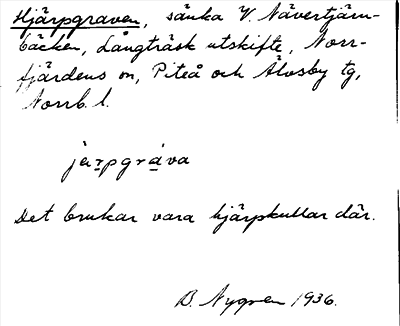 Hjärpgraven, sänka V. Nävertjärn-
bäcken, Långträsk utskifte, Norr-
fjärdens sn, Piteå och Älvsby tg,
Norrb. l.
järpgráva
Det brukar vara hjärpkullar där.
B. Nygren 1936.